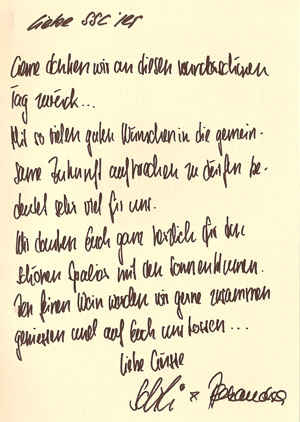 Liebe SSC'ler
Gerne denken wir an diesen wunderschönen
Tag zurück...
Mit so vielen guten Wünschen in die gemein-
same Zukunft aufbrechen zu dürfen be-
deutet sehr viel für uns.
Wir danken Euch ganz herzlich für den
schönen Spalier mit den Sonnenblumen.
Den feinen Wein werden wir gerne zusammen
geniessen und auf Euch anstossen...
Liebe Grüsse
&